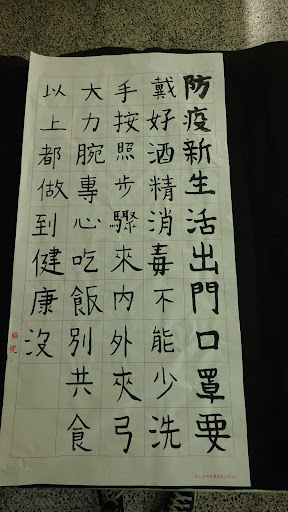 防疫新生活出門口罩要
戴好酒精消毒不能少洗
手按照步驟來內外夾弓
大力腕專心吃飯別共食
以上都做到健康沒